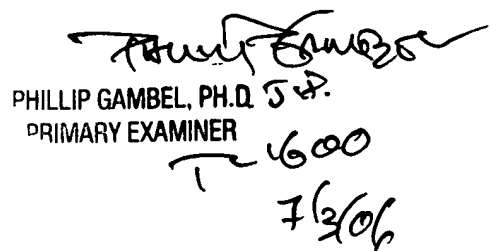 Phillip Gambel
PHILLIP GAMBEL, PH.D. J.D.
PRIMARY EXAMINER
TC 1600
7/3/06